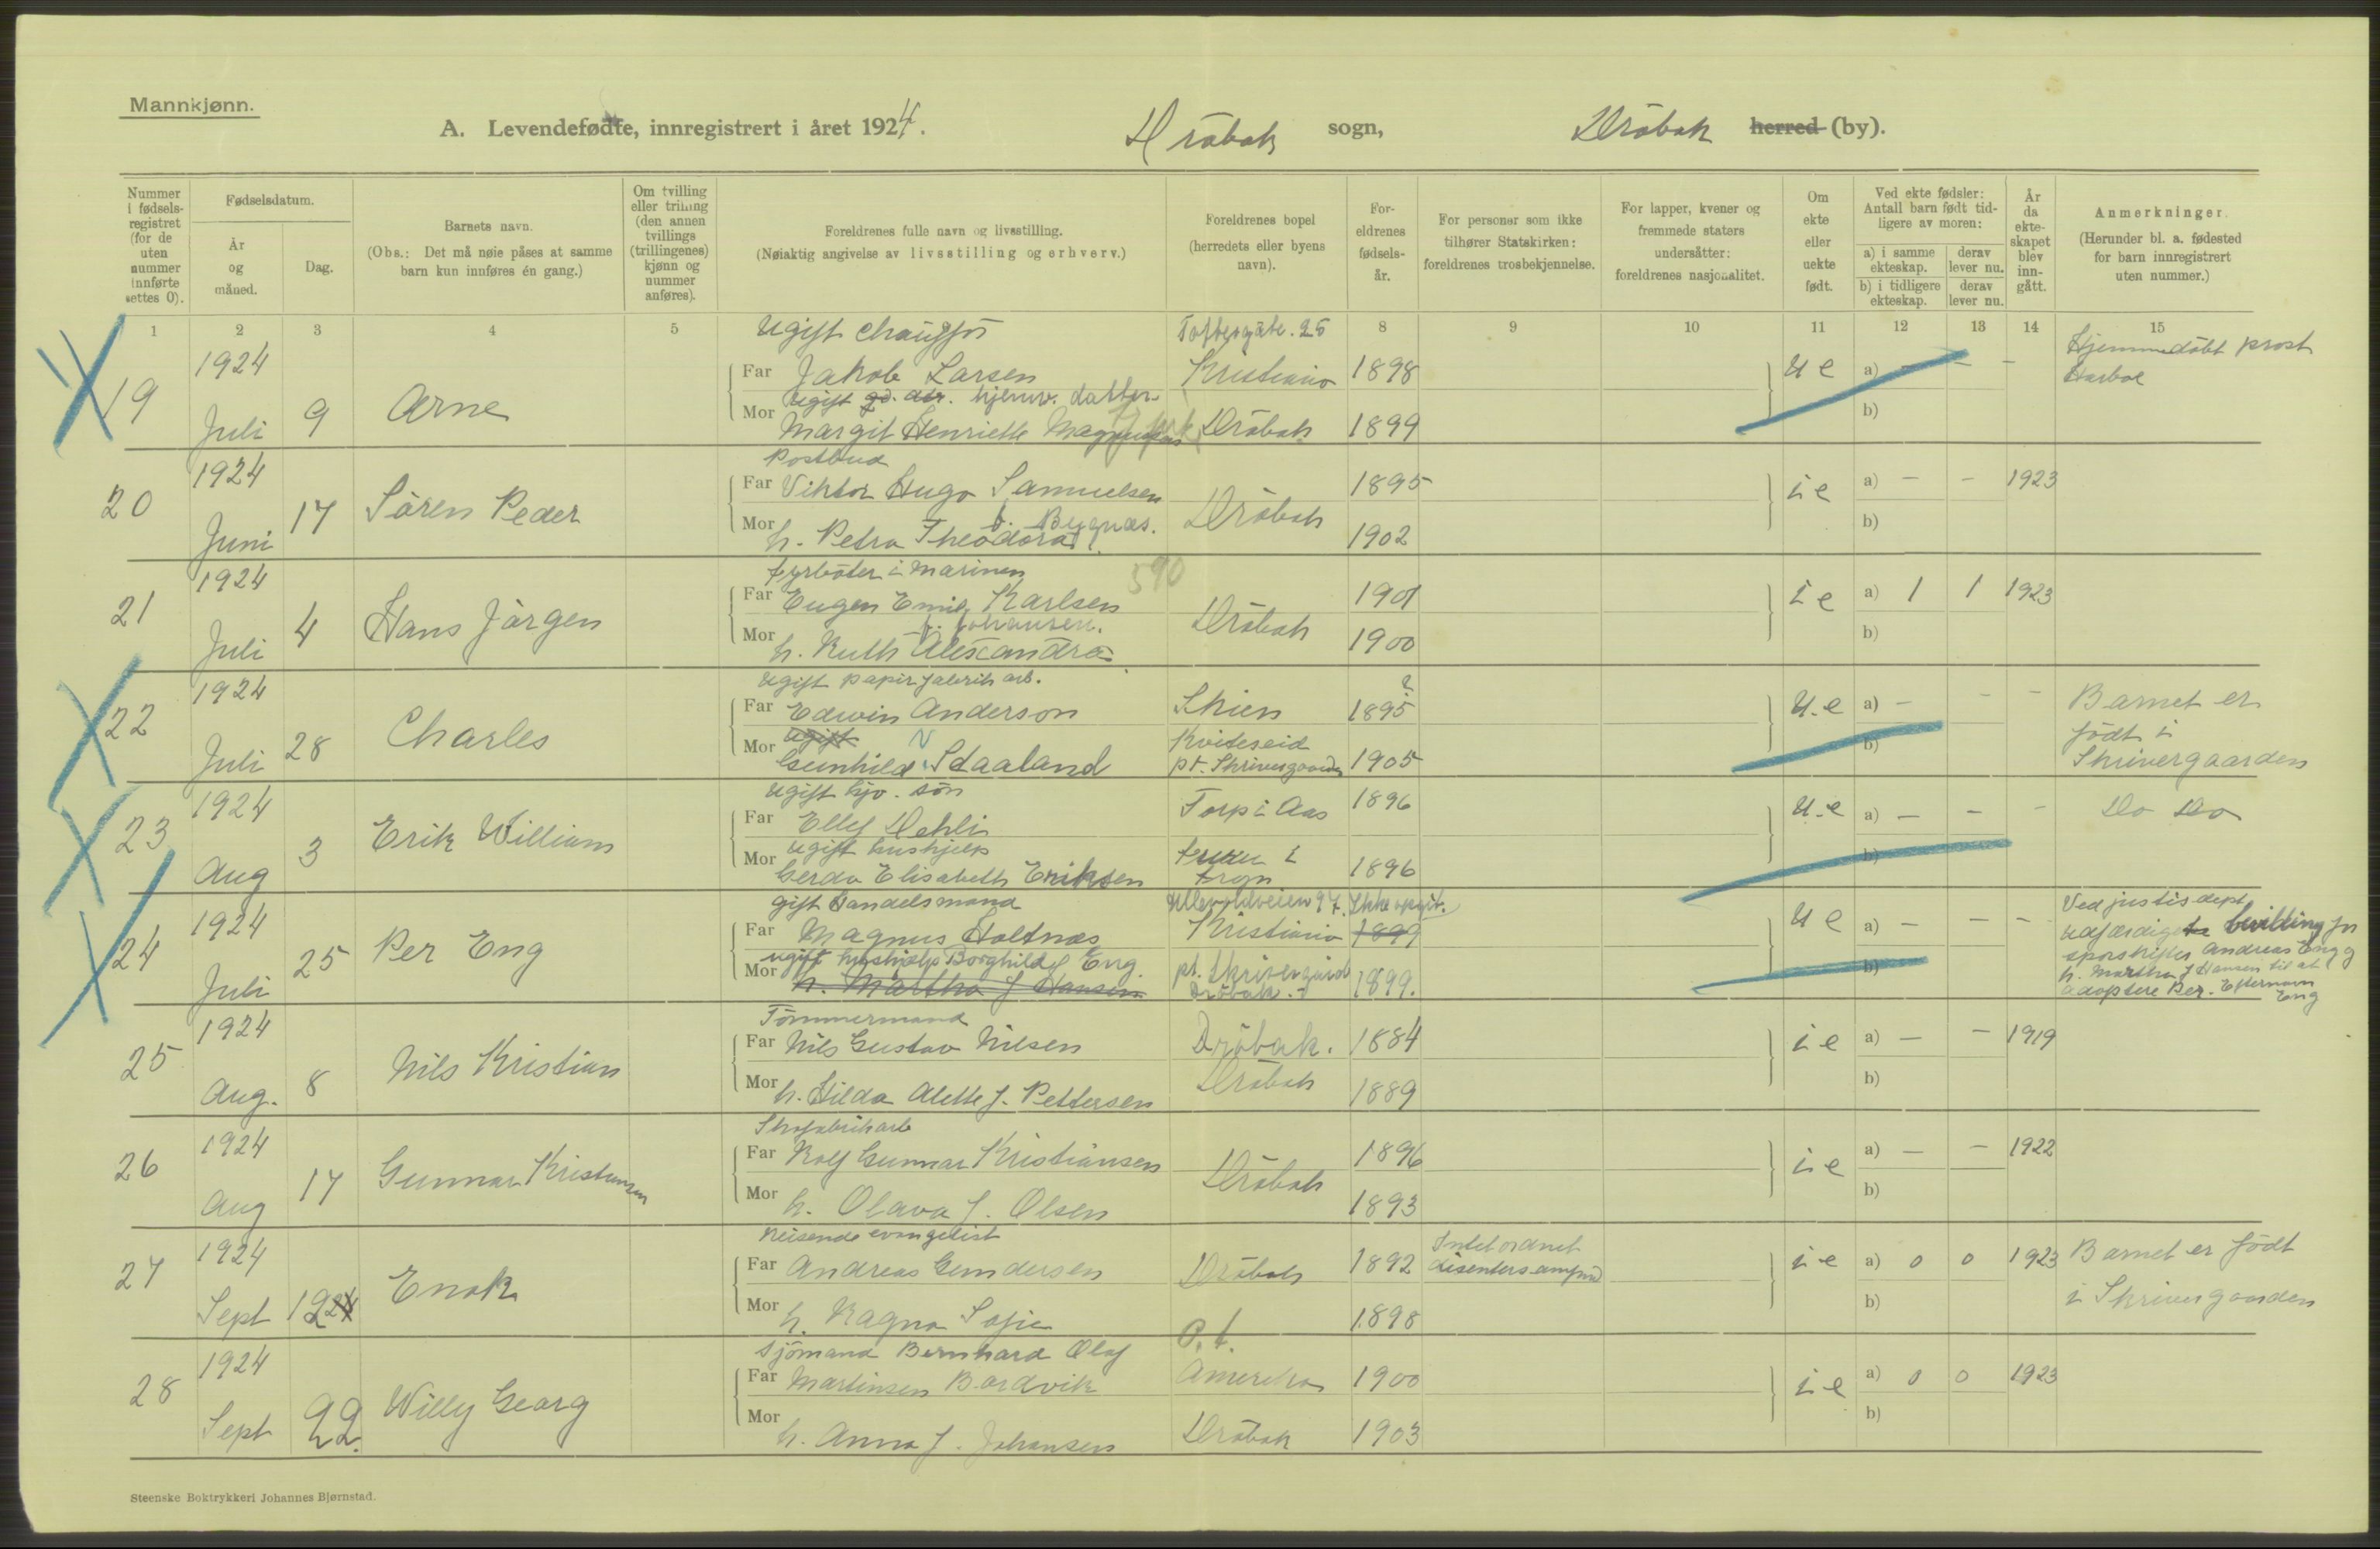 Mannkjønn.
A. Levendefødte, innregistrert i året 1924. Dröbak sogn, Dröbak herred (by).
Nummer i fødselsregistret (for de uten nummer innførte settes 0).
Fødselsdatum.
År og måned.
Dag.
Barnets navn.
(Obs.: Det må nøie påses at samme barn kun innføres én gang.)
Om tvilling eller trilling (den annen tvillings (trillingenes) kjønn og nummer anføres).
Foreldrenes fulle navn og livsstilling.
(Nøiaktig angivelse av livsstilling og erhverv.)
Foreldrenes bopel (herredets eller byens navn).
Foreldrenes fødselsår.
For personer som ikke tilhører Statskirken: foreldrenes trosbekjennelse.
For lapper, kvener og fremmede staters undersåtter: foreldrenes nasjonalitet.
Om ekte eller uekte født.
Ved ekte fødsler: Antall barn født tidligere av moren:
a) i samme ekteskap. derav lever nu.
b) i tidligere ekteskap. derav lever nu.
År da ekteskapet blev inngått.
Anmerkninger.
(Herunder bl. a. fødested for barn innregistrert uten nummer.)
1 2 3 4 5 8 9 10 11 12 13 14 15
Ugift chaufför Toftesgate. 25
19 1924 Juli 9 Arne
Far Jakob Larsen Kristiania 1898 u e a) - - - Hjemmedöbt prost
ugift hjemv. datter
Mor Margit Henriette Dröbak 1899 b)
Postbud
20 1924 Juni 17 Sören Peder
Far Viktor Hugo Samuelsen Dröbak 1895 i e a) - - 1923
f. Bygnæs.
Mor h. Petra Theodora 1902 b)
590
fyrböter i marinen
21 1924 Juli 4 Hans Jörgen
Far Eugen Emil Karlsen Dröbak 1901 i e a) 1 1 1923
f. Johansen.
Mor h. Ruth Alexandra 1900 b)
ugift papirfabrik arb.
22 1924 Juli 28 Charles
Far Edwin Anderson Skien 1895 ? u.e a) - - - Barnet er
ugift
Mor Gunhild Staaland Kviteseid pt. Skrivergaarden 1905 b) födt i Skrivergaarden
ugift hjv. sön
23 1924 Aug 3 Erik William
Far Ellef Dehli Torp i Aas 1896 u.e a) - - - Do Do
ugift hushjelp
Mor Gerda Elisabeth Eriksen Frogn 1896 b)
gift Handelsmand Ullevoldveien 97. Ikke opgit.
24 1924 Juli 25 Per Eng
Far Magnus Holtnæs Kristiania 1899 u e a) - - - Ved justisdept
ugift hushjelp Borghild Eng.
Mor h. Martha f Hansen pt. Skrivergård Dröbak. 1899. b)
bevilling for
sporskifter Andreas Eng og
h. Martha f Hansen til at
adoptere Per. Efternavn
Eng
Tömmermand
25 1924 Aug. 8 Nils Kristian
Far Nils Gustav Nilsen Dröbak. 1884 i e a) - - 1919
Mor h. Hilda Alette f. Pettersen Dröbak 1889 b)
Skofabrikarb
26 1924 Aug 17 Gunnar Kristiansen
Far Rolf Gunnar Kristiansen Dröbak 1896 i e a) - - 1922
Mor h. Olava f. Olsen 1893 b)
Reisende evangelist
27 1924 Sept 12 Enok
Far Andreas Gundersen Dröbak 1892 Intet ordnet i e a) 0 0 1923 Barnet er födt
Mor h. Ragna Sofie 1898 b) i Skrivergaarden
Sjömand Bernhard Olaf p.t.
28 1924 Sept 22. Willy Georg
Far Martinsen Bordvik Amerika 1900 i e a) 0 0 1923
Mor h. Anna f. Johansen Dröbak 1903 b)
Steenske Boktrykkeri Johannes Bjørnstad.